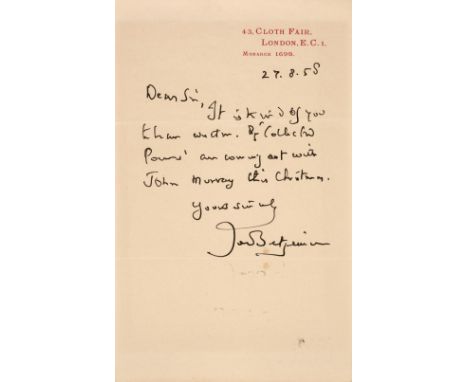 43, CLOTH FAIR,
LONDON, E.C.1.
MONARCH 1698.
27.8.58
Dear Sir,
It is kind of you
to have written. My Collected
Poems are coming out with
John Murray this Christmas.
Yours sincerely
John Betjeman